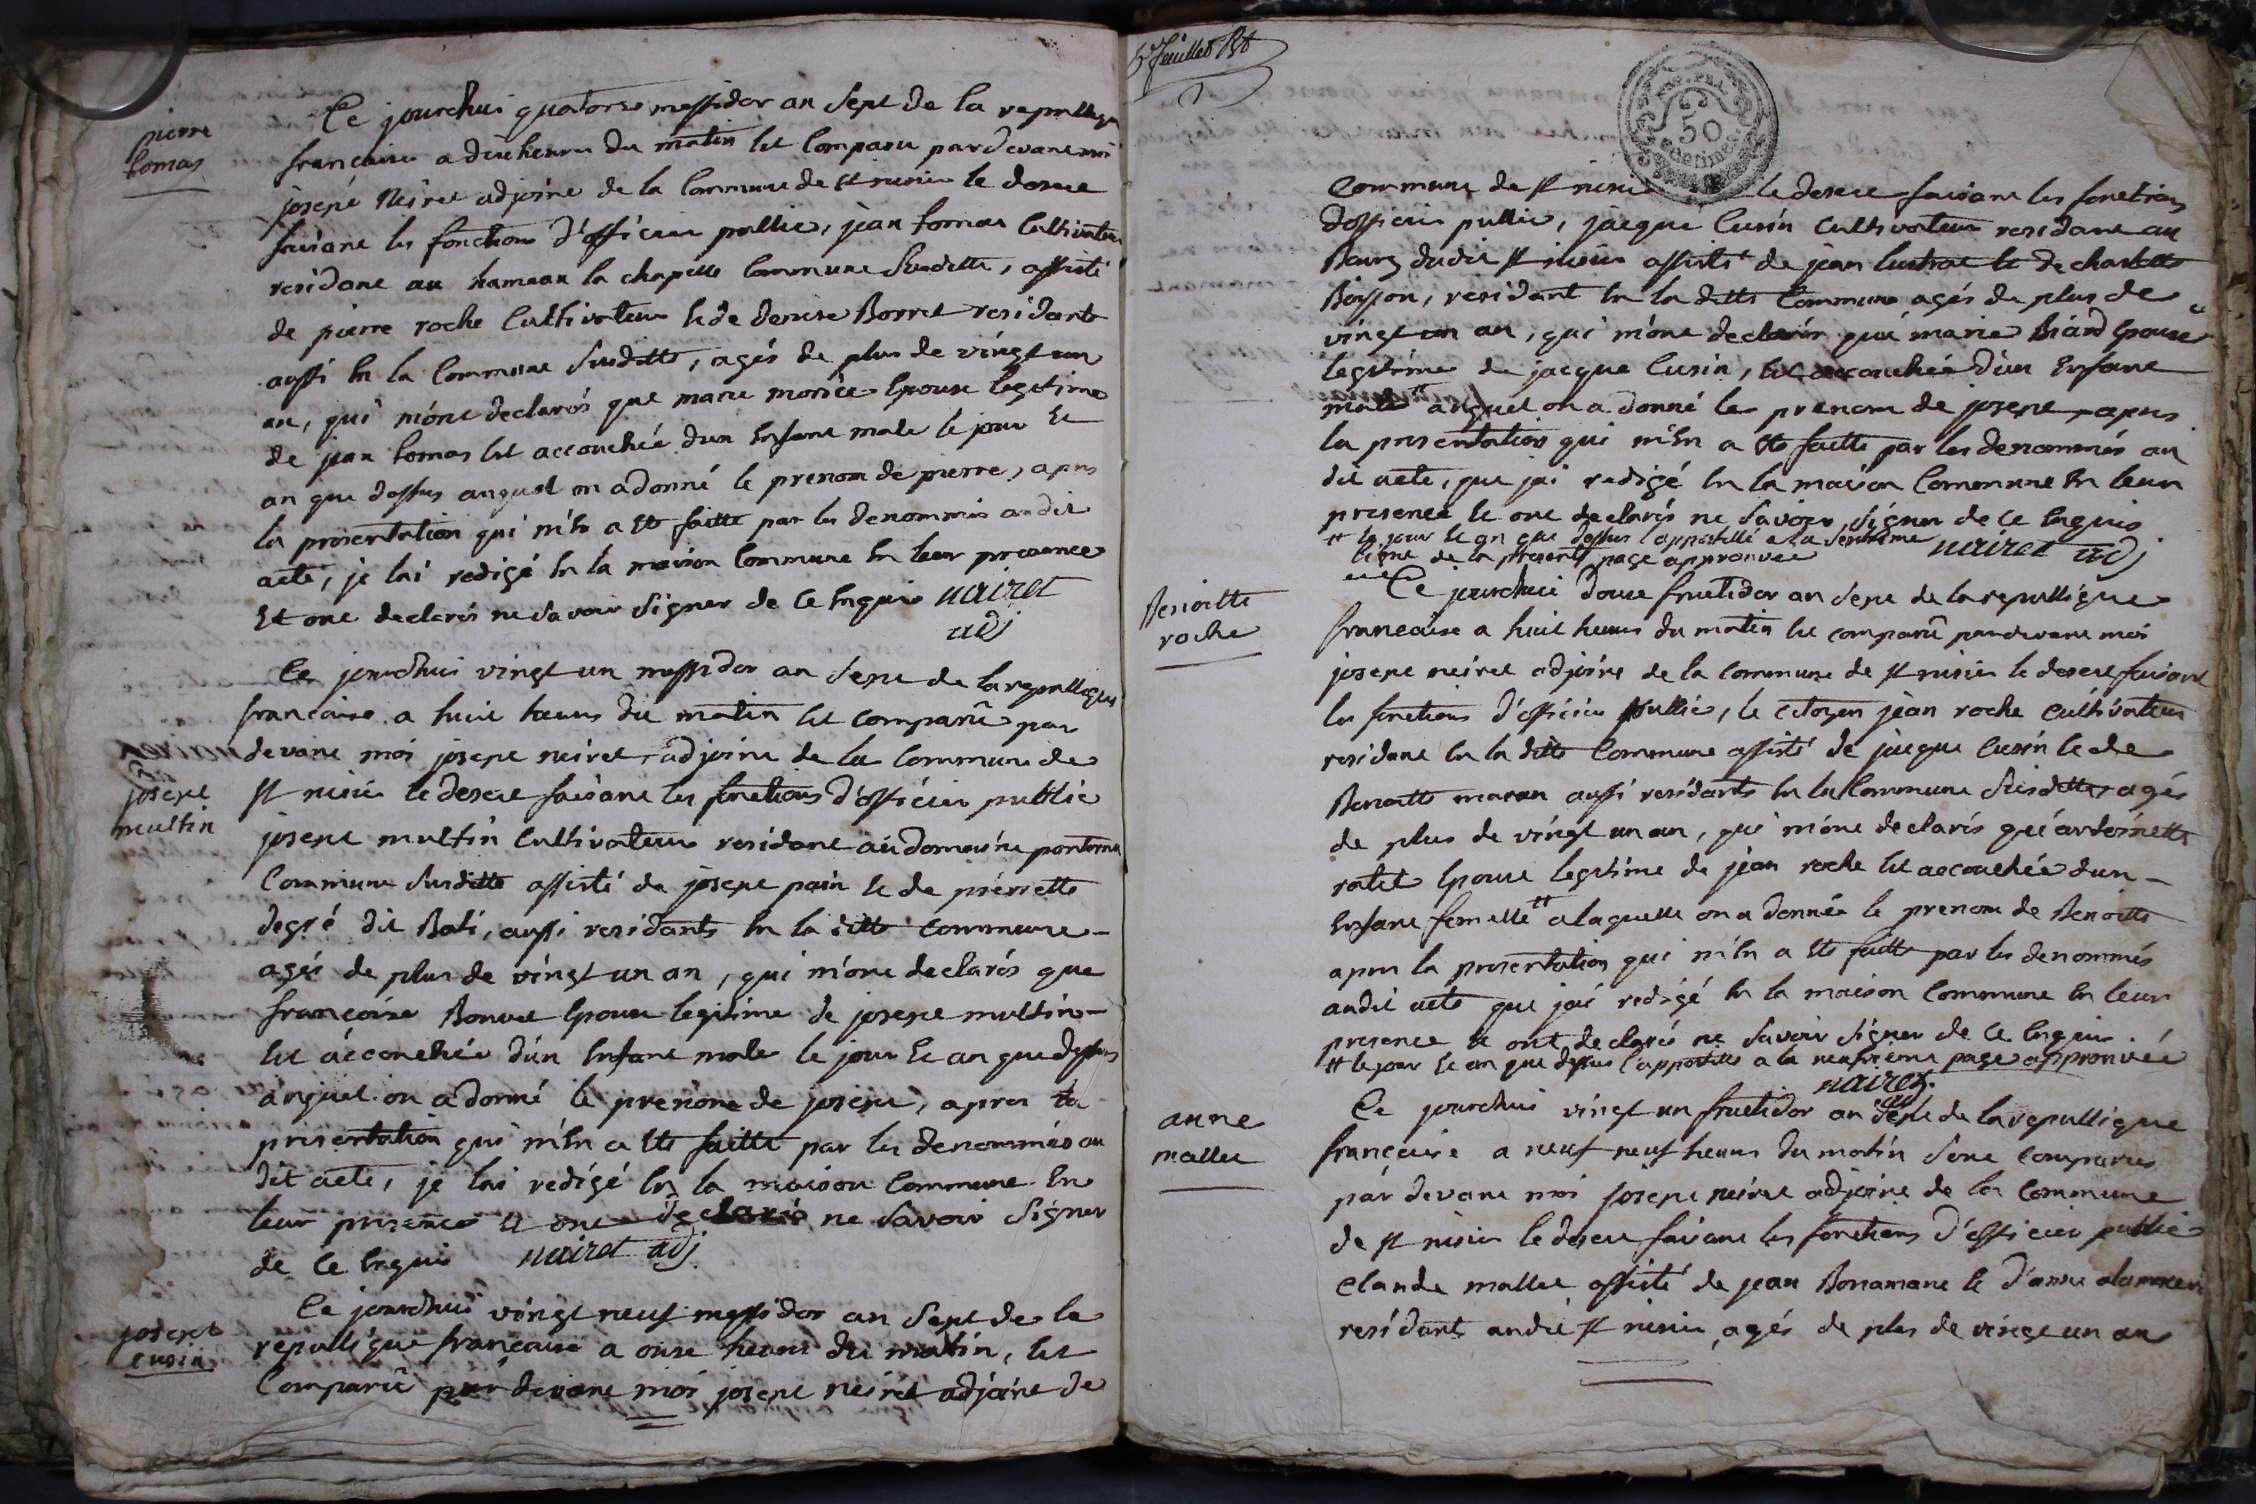 pierre
Comas
Ce jourdhui quatorse messidor an sept de la republique
francaise a dix heures du matin Est Comparu pardevant moi
josept Neiret adjoint de la Commune de st nisier le desert
faisant les fonctions d'officier publlic, jean Comas Cultivateur
residant au hameau la chapelle Commune Susditte, assisté
de pierre roche Cultivateur Et de denise Borret residants
aussi En la Commune Susditte, agés de plus de vingt un
an, qui m'ont declarés que marie Epouse legitime
de jean Comas Est accouchée d'un Enfant male le jour Et
an que dessus auquel on a donné le prenom de pierre, apres
la presentation qui m'En a Ete faitte par les denommés au dit
acte, je lai redigé En la maison Commune En leur presence
Et ont declarés ne savoir signer de Ce Enquis nairet
adj
josept
multin
Ce jourdhui vingt un messidor an sept de la republique
francaise a huit heures du matin Est Comparû par
devant moi josept neiret adjoint de la Commune de
st nisié le desert faisant les fonctions d'officier publlic
josept multin Cultivateur residant au domaine
Commune Susditte assisté de josept pain Et de pierrette
degré dit Bati, aussi residants En la ditte Commune
agés de plus de vingt un an, qui m'ont declarés que
francoise Bonnet Epouse legitime de josept multin
Est accouchée d'un Enfant male le jour Et an que dessus
auquel on a donné le prenom de josept, apres la
presentation qui m'En a Ete faitte par les denommés au
dit acte, je lai redigé En la maison Commune En
leur presence Et ont declarés ne savoir signer
de Ce Enquis nairet adj
josept
cusin
Ce jourdhui vingt neuf messidor an sept de la
republlique francaise a onse heures du matin, Est
Comparû par devant moi josept neiret adjoint de
5e feuillet Rt
50
centimes
Commune de st nisié le desert faisant les fonctions
d'officier publlic, jacque Cusin Cultivateur residant au
Bourg dudit st nisier assisté de jean Et de charlotte
Boisson, residant En la ditte Commune agés de plus de
vingt un an, qui m'ont declarés que marie Biard Epouse
legitime de jacque Cusin, Est accouchée d'un Enfant
male tt auquel on a donné le prenom de josept apres
la presentation qui m'En a Ete faitte par les denommés au
dit acte, que jai redigé En la maison Commune En leur
presence Et ont declarés ne savoir signer de Ce Enquis
tt le jour Et an que dessus l'appostillé a la septieme
ligne de la presente page approuvée nairet adj
Benoitte
roche
Ce jourdhui douse fructidor an sept de la republlique
francaise a huit heures du matin Est comparû pardevant moi
josept neiret adjoint de la Commune de st nisier le desert faisant
les fonctions d'officier publlic, le citoyen jean roche cultivateur
residant En la ditte Commune assisté de jacque Cusin Et de
Benoitte aussi residants En la Commune Susditte agés
de plus de vingt un an, qui m'ont declarés que antoinette
ratet Epouse legitime de jean roche Est accouchée d'un
Enfant femelle tt a laquelle on a donnée le prenom de Benoitte
apres la presentation qui m'En a Ete faitte par les denommés
au dit acte que jai redigé En la maison Commune En leur
presence Et ont declarés ne savoir signer de Ce Enquis
tt le jour Et an que dessus l'appostille a la neufvieme page approuvée
nairet
adj
anne
mallet
Ce jourdhui vingt un fructidor an sept de la republlique
française a neuf neuf heures du matin sont Comparus
par devant moi josept neiret adjoint de la Commune
de st nisier le desert faisant les fonctions d'officier publlic
Claude mallet assisté de jean Bonamant Et d'anne
residants audit st nisier, agés de plus de vingt un an